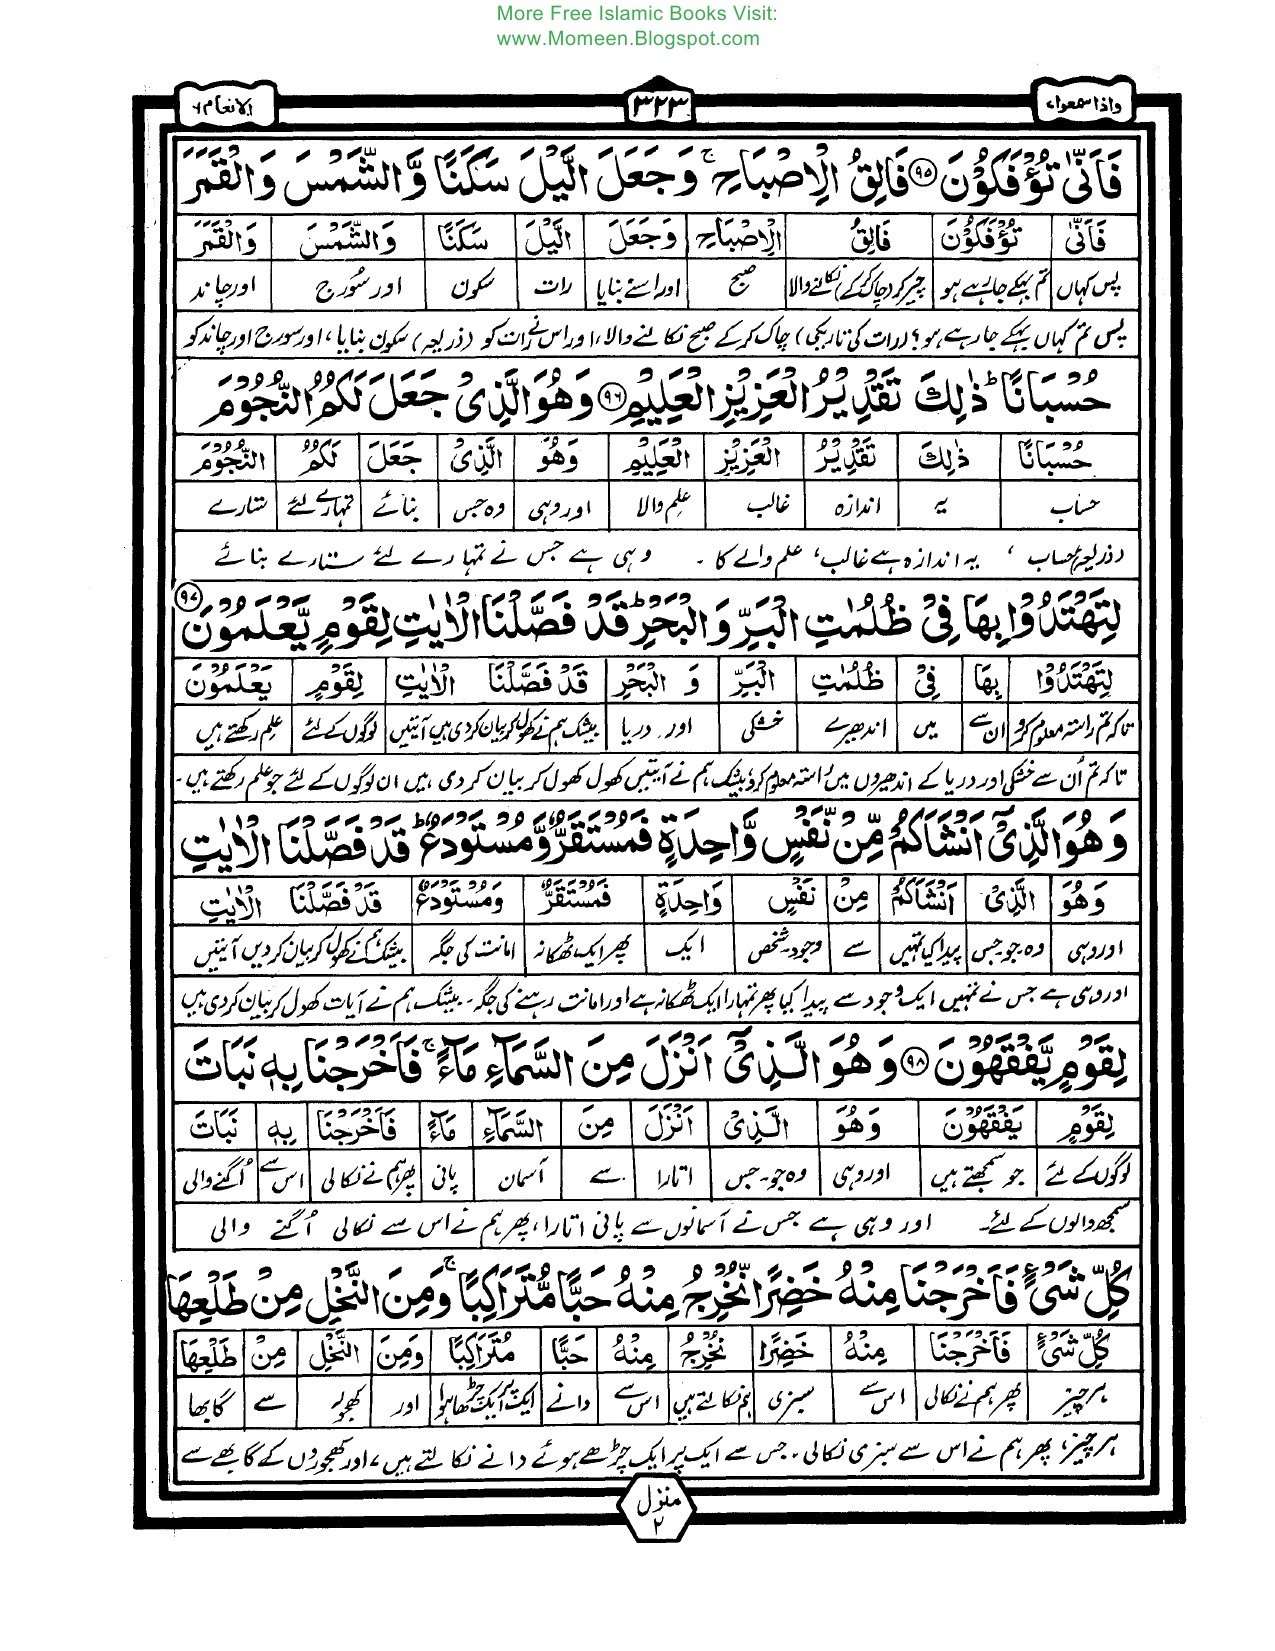 More Free Islamic Books Visit:
www.Momeen.Blogspot.com
واذاسمعوا، ۳۲۳ الانعام ۶
فَاَنّٰی تُؤْفَكُوْنَ ﴿۹۵﴾ فَالِقُ الْاِصْبَاحِ ۚ وَ جَعَلَ الَّیْلَ سَكَنًا وَّالشَّمْسَ وَالْقَمَرَ
فَاَنّٰی تُؤْفَكُوْنَ فَالِقُ الْاِصْبَاحِ وَجَعَلَ الَّیْلَ سَكَنًا وَالشَّمْسَ وَالْقَمَرَ
پس کہاں تم بہکے جارہے ہو چیر کر (چاک کرکے) نکالنے والا صبح اور اسنے بنایا رات سکون اور سُورج اور چاند
پس تم کہاں بہکے جارہے ہو؟ (رات کی تاریکی) چاک کرکے صبح نکالنے والا، اور اس نے رات کو (ذریعہ) سکون بنایا، اور سورج اور چاند کو
حُسْبَانًا ؕ ذٰلِكَ تَقْدِیْرُ الْعَزِیْزِ الْعَلِیْمِ ﴿۹۶﴾ وَهُوَ الَّذِیْ جَعَلَ لَكُمُ النُّجُوْمَ
حُسْبَانًا ذٰلِكَ تَقْدِیْرُ الْعَزِیْزِ الْعَلِیْمِ وَهُوَ الَّذِیْ جَعَلَ لَكُمُ النُّجُوْمَ
حساب یہ اندازہ غالب علم والا اور وہی وہ جس بنائے تمہارے لئے ستارے
(ذریعۂ) حساب، یہ اندازہ ہے غالب، علم والے کا ۔ وہی ہے جس نے تمہارے لئے ستارے بنائے
لِتَهْتَدُوْا بِهَا فِیْ ظُلُمٰتِ الْبَرِّ وَالْبَحْرِ ؕ قَدْ فَصَّلْنَا الْاٰیٰتِ لِقَوْمٍ یَّعْلَمُوْنَ ﴿۹۷﴾
لِتَهْتَدُوْا بِهَا فِیْ ظُلُمٰتِ الْبَرِّ وَ الْبَحْرِ قَدْ فَصَّلْنَا الْاٰیٰتِ لِقَوْمٍ یَعْلَمُوْنَ
تاکہ تم راستہ معلوم کرو ان سے میں اندھیرے خشکی اور دریا بیشک ہم نے کھول کر بیان کردی ہیں آیتیں لوگوں کے لئے علم رکھتے ہیں
تاکہ تم اُن سے خشکی اور دریا کے اندھیروں میں راستہ معلوم کرو، بیشک ہم نے آیتیں کھول کھول کر بیان کردی ہیں ان لوگوں کے لئے جو علم رکھتے ہیں۔
وَهُوَ الَّذِیْۤ اَنْشَاَكُمْ مِّنْ نَّفْسٍ وَّاحِدَةٍ فَمُسْتَقَرٌّ وَّمُسْتَوْدَعٌ ؕ قَدْ فَصَّلْنَا الْاٰیٰتِ
وَهُوَ الَّذِیْۤ اَنْشَاَكُمْ مِنْ نَفْسٍ وَاحِدَةٍ فَمُسْتَقَرٌّ وَمُسْتَوْدَعٌ قَدْ فَصَّلْنَا الْاٰیٰتِ
اور وہی وہ جو جس پیدا کیا تمہیں سے وجود۔شخص ایک پھر ایک ٹھکانہ امانت کی جگہ بیشک ہم نے کھول کر بیان کردیں آیتیں
اور وہی ہے جس نے تمہیں ایک وجود سے پیدا کیا پھر تمہارا ایک ٹھکانہ ہے اور امانت رہنے کی جگہ ۔ بیشک ہم نے آیات کھول کر بیان کردی ہیں
لِقَوْمٍ یَّفْقَهُوْنَ ﴿۹۸﴾ وَهُوَ الَّذِیْۤ اَنْزَلَ مِنَ السَّمَآءِ مَآءً ۚ فَاَخْرَجْنَا بِهٖ نَبَاتَ
لِقَوْمٍ یَفْقَهُوْنَ وَهُوَ الَّذِیْۤ اَنْزَلَ مِنَ السَّمَآءِ مَآءً فَاَخْرَجْنَا بِهٖ نَبَاتَ
لوگوں کے لئے جو سمجھتے ہیں اور وہی وہ جو۔جس اتارا سے آسمان پانی پھر ہم نے نکالی اس سے اُگنے والی
سمجھ والوں کے لئے۔ اور وہی ہے جس نے آسمانوں سے پانی اتارا، پھر ہم نے اس سے نکالی اُگنے والی
كُلِّ شَیْءٍ فَاَخْرَجْنَا مِنْهُ خَضِرًا نُّخْرِجُ مِنْهُ حَبًّا مُّتَرَاكِبًا ۚ وَمِنَ النَّخْلِ مِنْ طَلْعِهَا
كُلِّ شَیْءٍ فَاَخْرَجْنَا مِنْهُ خَضِرًا نُخْرِجُ مِنْهُ حَبًّا مُتَرَاكِبًا وَمِنَ النَّخْلِ مِنْ طَلْعِهَا
ہر چیز پھر ہم نے نکالی اس سے سبزی ہم نکالتے ہیں اس سے دانے ایک پر ایک چڑھا ہوا اور کھجور سے گابھا
ہر چیز، پھر ہم نے اس سے سبزی نکالی، جس سے ایک پر ایک چڑھے ہوئے دانے نکالتے ہیں، اور کھجوروں کے گابھے سے
منزل
۲